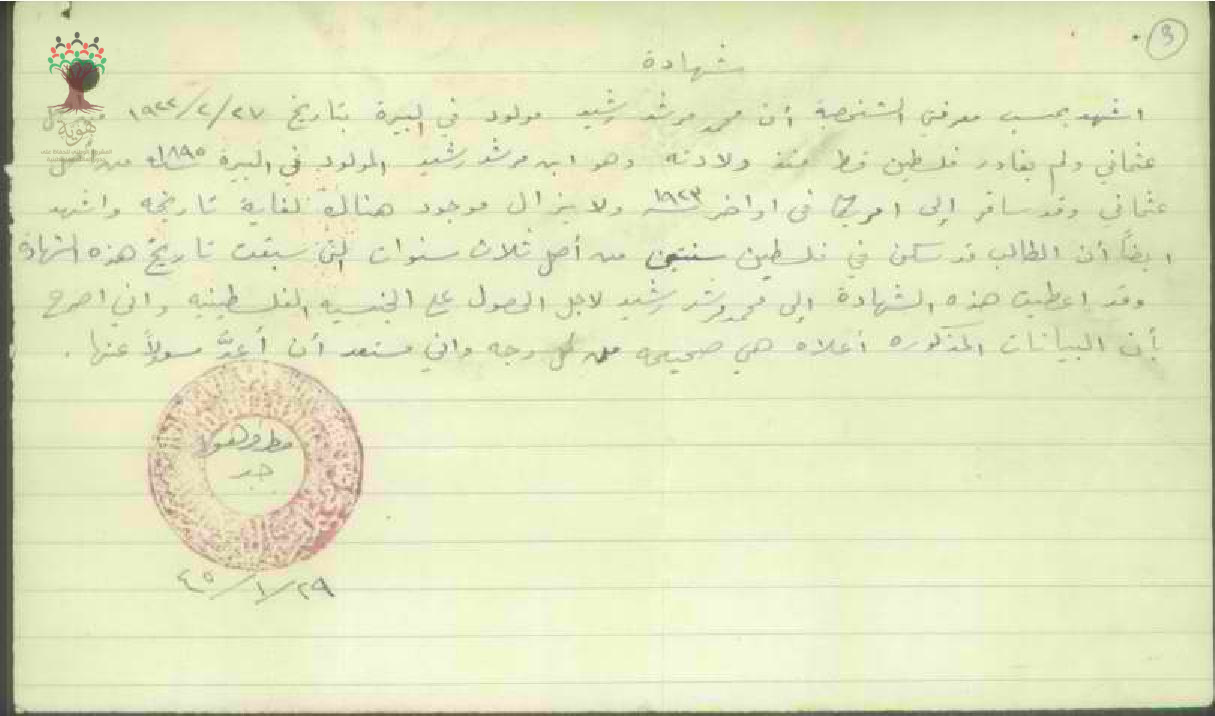 3
شهادة
اشهد بحسب معرفتي الشخصية أن محمد مرشد رشيد مولود في البيرة بتاريخ ٢٧/٢/١٩٢٢
عثماني ولم يغادر فلسطين قط منذ ولادته وهو ابن مرشد رشيد المولود في البيرة سنة ١٨٩٥ من أصل
عثماني وقد سافر إلى امريكا في اواخر سنة ١٩٢٣ ولا يزال موجود هناك لغاية تاريخه واشهد
ايضاً أن الطالب قد سكن في فلسطين سنتين من أصل ثلاث سنوات التي سبقت تاريخ هذه الشهادة
وقد اعطيت هذه الشهادة إلى محمد مرشد رشيد لاجل الحصول على الجنسيه الفلسطينيه واني اصرح
بأن البيانات المذكوره أعلاه هي صحيحه من كل وجه واني مستعد أن أعدَّ مسؤلاً عنها .
٢٩/١/٤٥
هوية